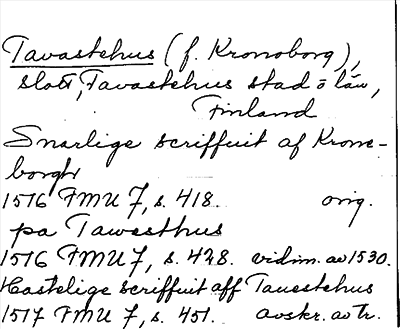 Tavastehus (f. Kronoborg),
slott, Tavastehus stad o län,
Finland
Snarlige scriffuit af Krone-
borgh
1516 FMU 7, s. 418. orig.
pa Tawesthus
1516 FMU 7, s. 428. vidim. av 1530.
Hastelige scriffuit aff Tauestehus
1517 FMU 7, s. 451. avskr. av tr.